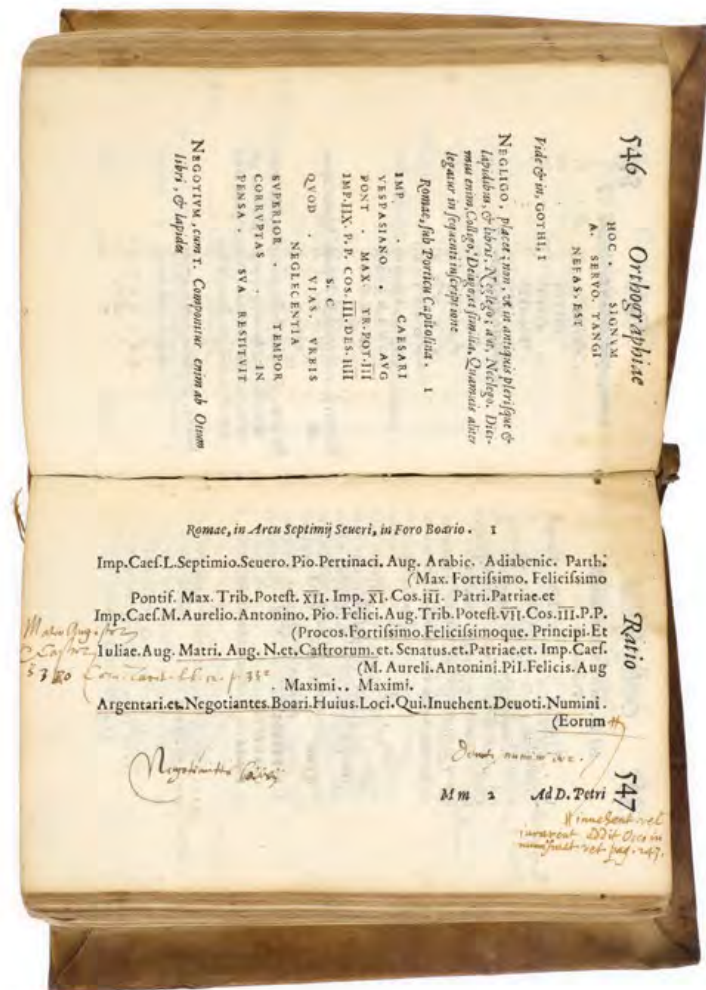 546
Orthographiae
HOC . SIGNVM
A. SERVO. TANGI
NEFAS. EST
Vide & in, GOTHI, I
NEGLIGO, placet; non, vt in antiquis plerisque &
lapidibus, & libris, Neglego; aut, Neclego. Dici-
mus enim, Colligo, Deligo, et similia. Quamuis aliter
legatur in sequenti inscriptione
Romae, sub Porticu Capitolina. I
IMP . CAESARI
VESPASIANO . AVG
PONT . MAX . TR. POT. III
IMP. IIX. P. P. COS. III. DES. IIII
S. C
QVOD . VIAS. VRBIS
NEGLECENTIA
SVPERIOR . TEMPOR
CORRVPTAS . IN
PENSA . SVA RESTITVIT
NEGOTIVM, cum T. Componitur enim ab Otium
libri, & lapides
Ratio
547
Romae, in Arcu Septimij Seueri, in Foro Boario. I
Imp. Caes. L. Septimio. Seuero. Pio. Pertinaci. Aug. Arabic. Adiabenic. Parth.
(Max. Fortissimo. Felicissimo
Pontif. Max. Trib. Potest. XII. Imp. XI. Cos. III. Patri. Patriae. et
Imp. Caes. M. Aurelio. Antonino. Pio. Felici. Aug. Trib. Potest. VII. Cos. III. P. P.
(Procos. Fortissimo. Felicissimoque. Principi. Et
Iuliae. Aug. Matri. Aug. N. et. Castrorum. et. Senatus. et. Patriae. et. Imp. Caes.
(M. Aureli. Antonini. Pii. Felicis. Aug
. Maximi.. Maximi.
Argentari. et. Negotiantes. Boari. Huius. Loci. Qui. Inuehent. Deuoti. Numini.
(Eorum
Mater Aug.
Negotiantes boarij
numini
Mm 2 Ad D. Petri
inuehent vel
pag. 247.